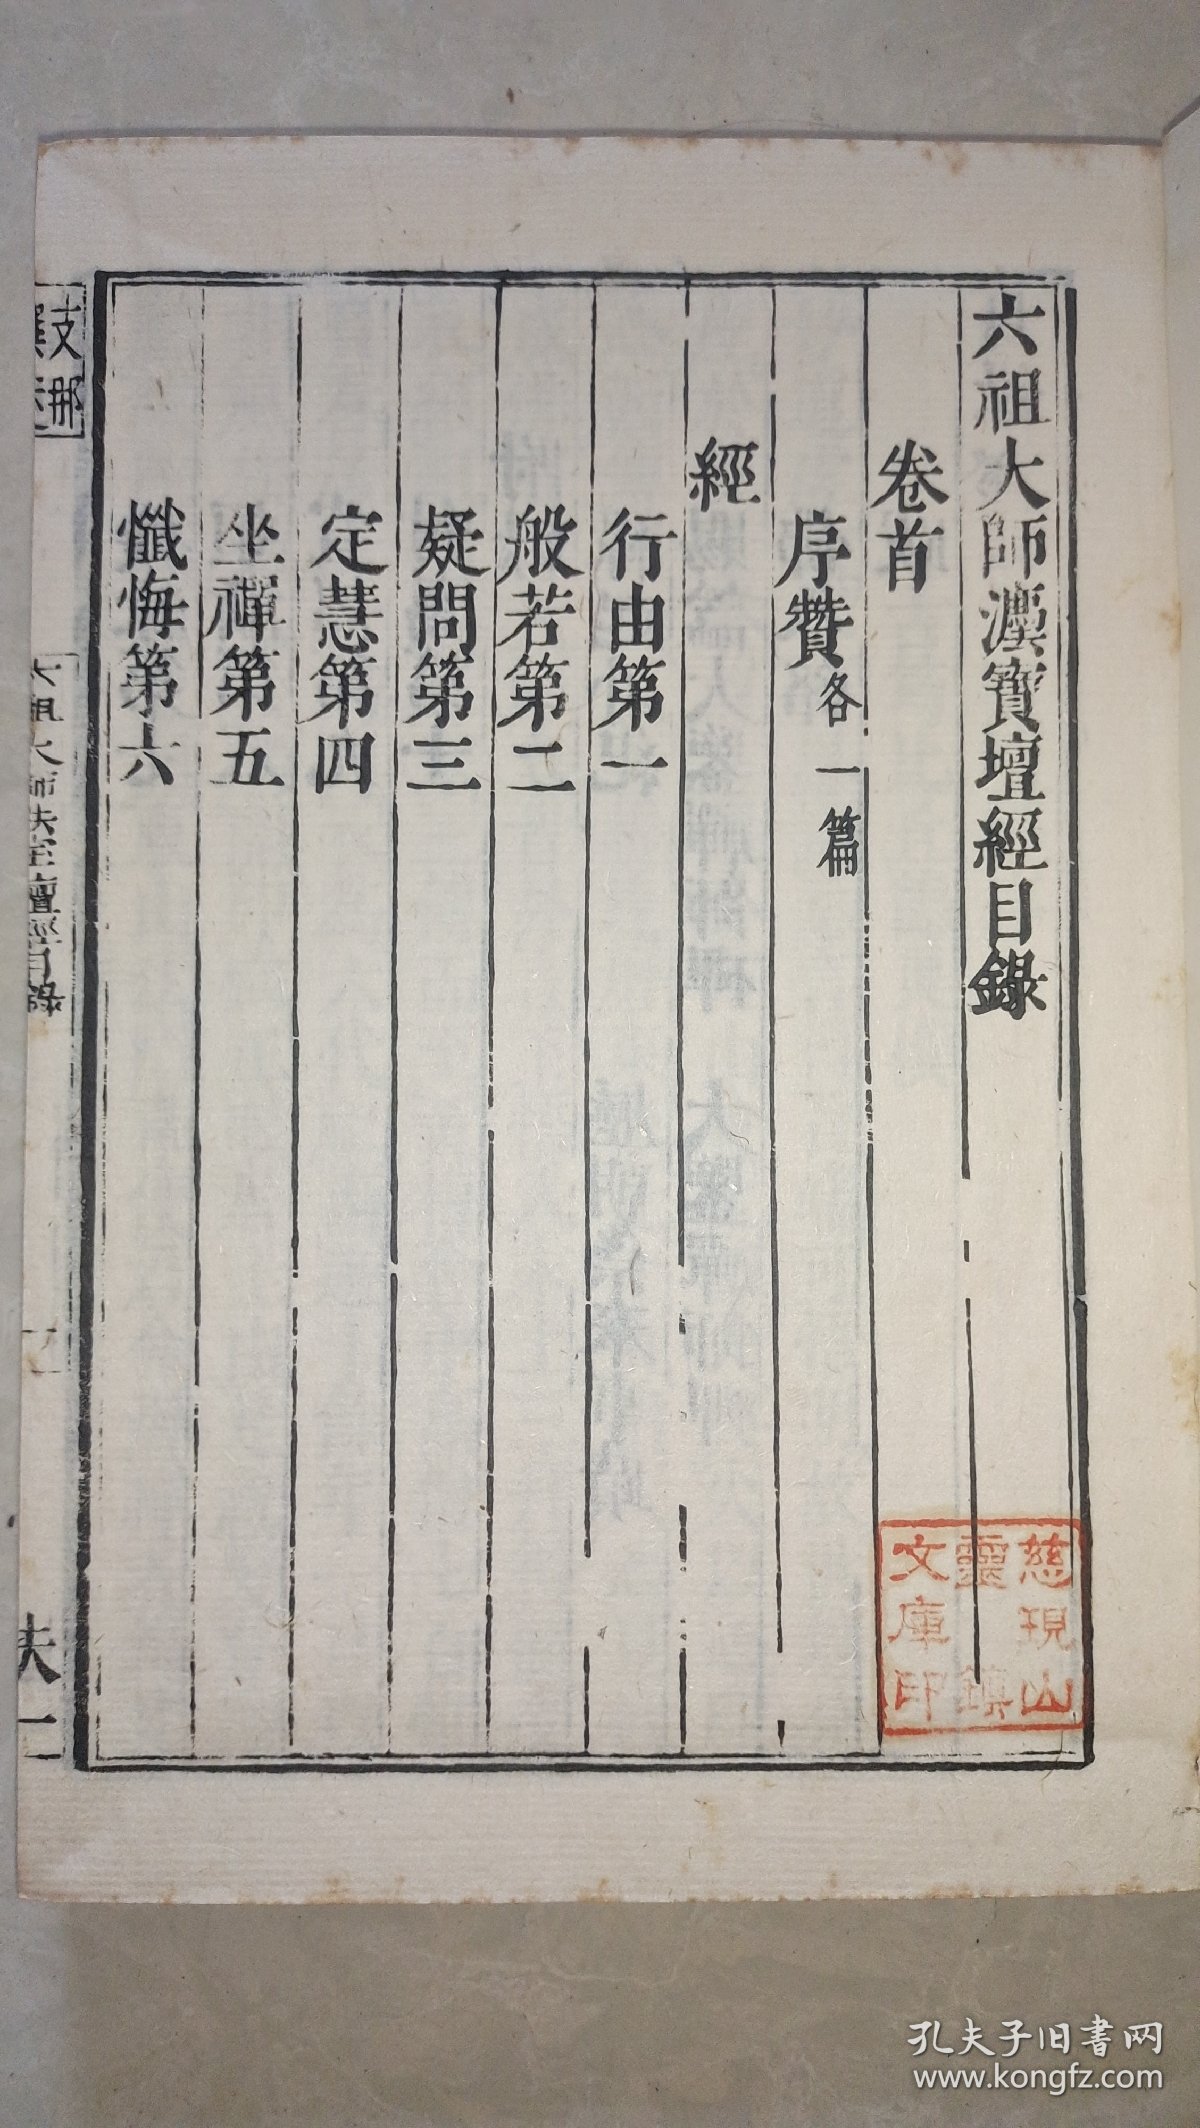 六祖大師灋寶壇經目錄
卷首
序贊各一篇
經
行由第一
般若第二
疑問第三
定慧第四
坐禪第五
懺悔第六
支那
六祖大師法寶壇經目錄
一
扶一
慈現山
靈鎮
文庫印
孔夫子旧书网
www.kongfz.com